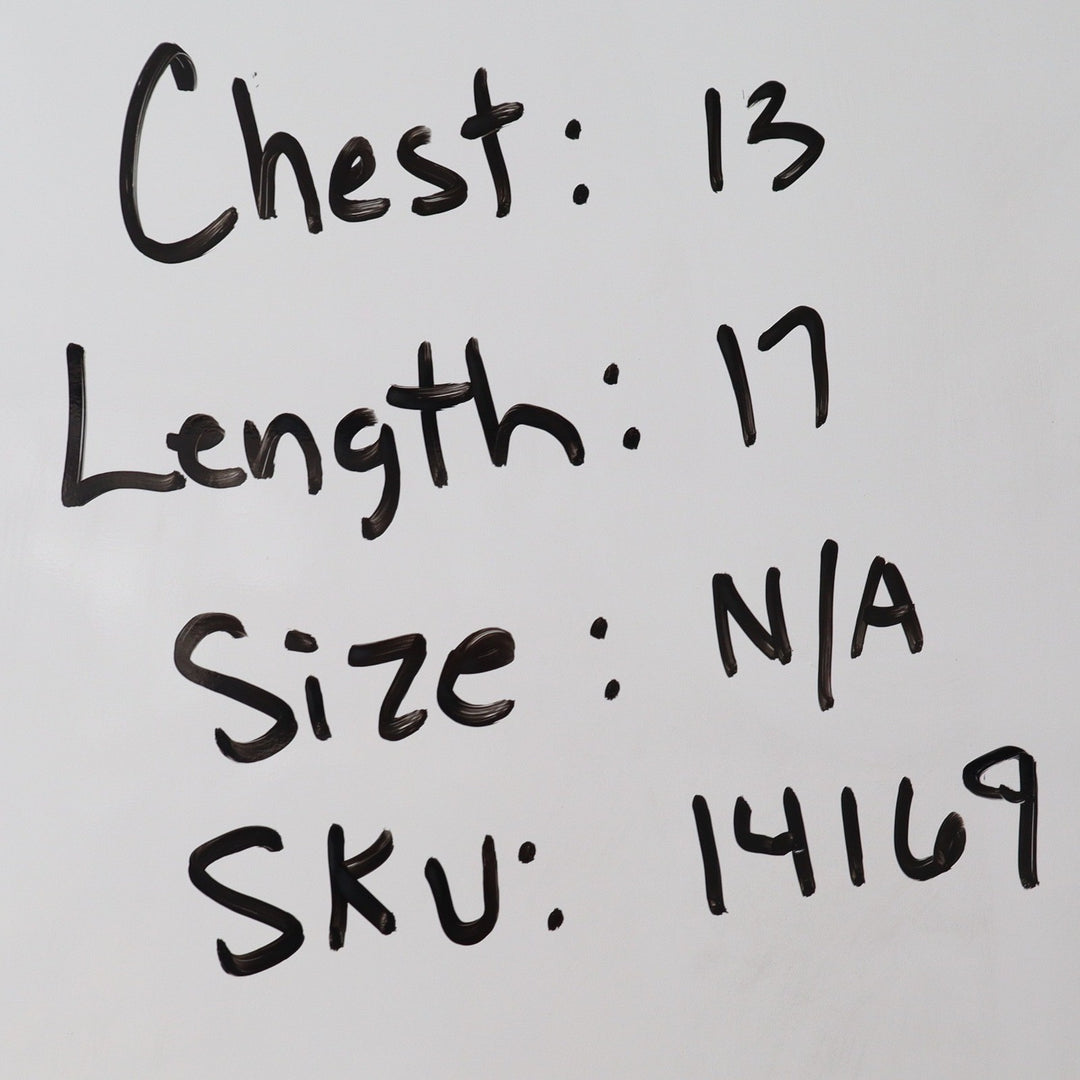 Chest: 13
Length: 17
Size: N/A
SKU: 14169